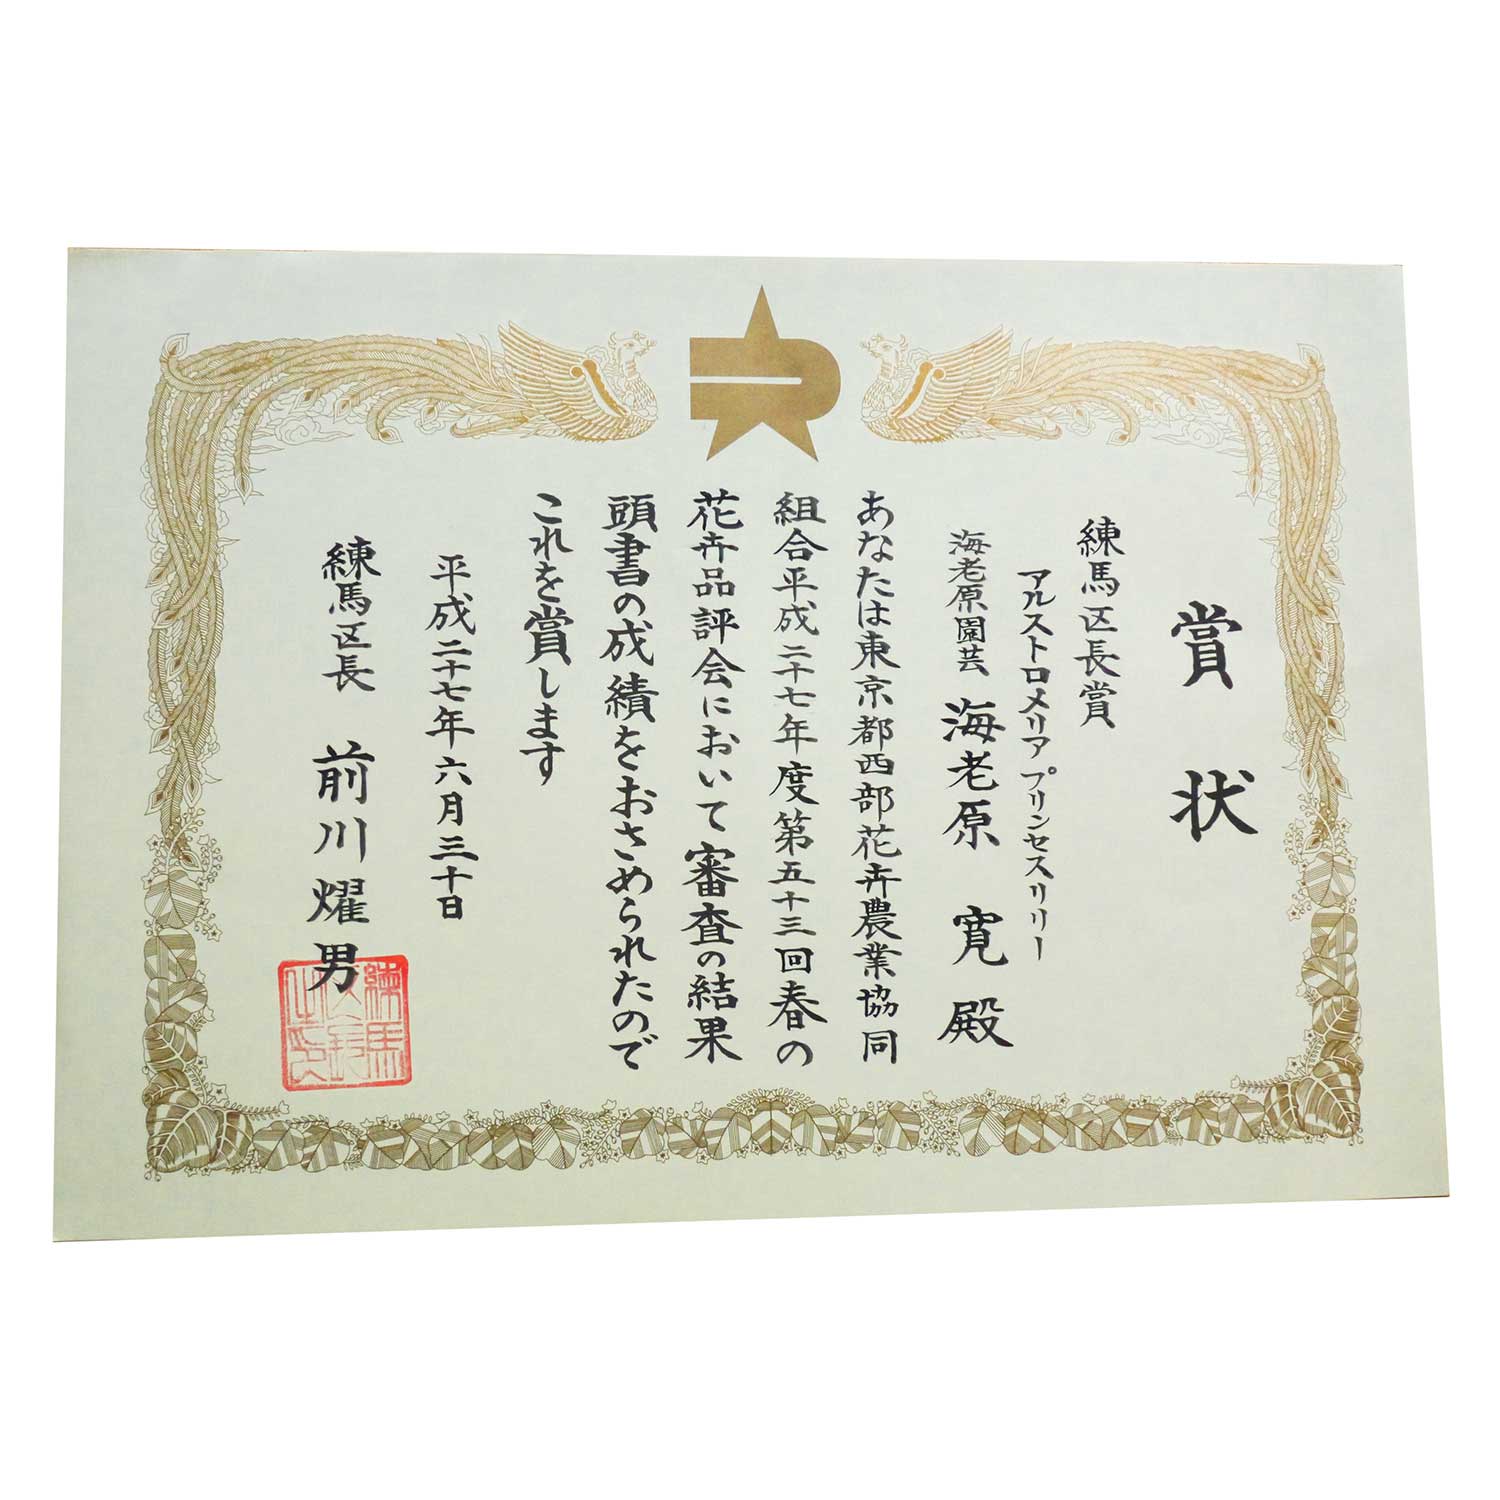 賞状
練馬区長賞
アルストロメリア プリンセスリリー
海老原園芸 海老原 寛 殿
あなたは東京都西部花卉農業協同
組合平成二十七年度第五十三回春の
花卉品評会において審査の結果
頭書の成績をおさめられたので
これを賞します
平成二十七年六月三十日
練馬区長 前川燿男
練馬区長之印